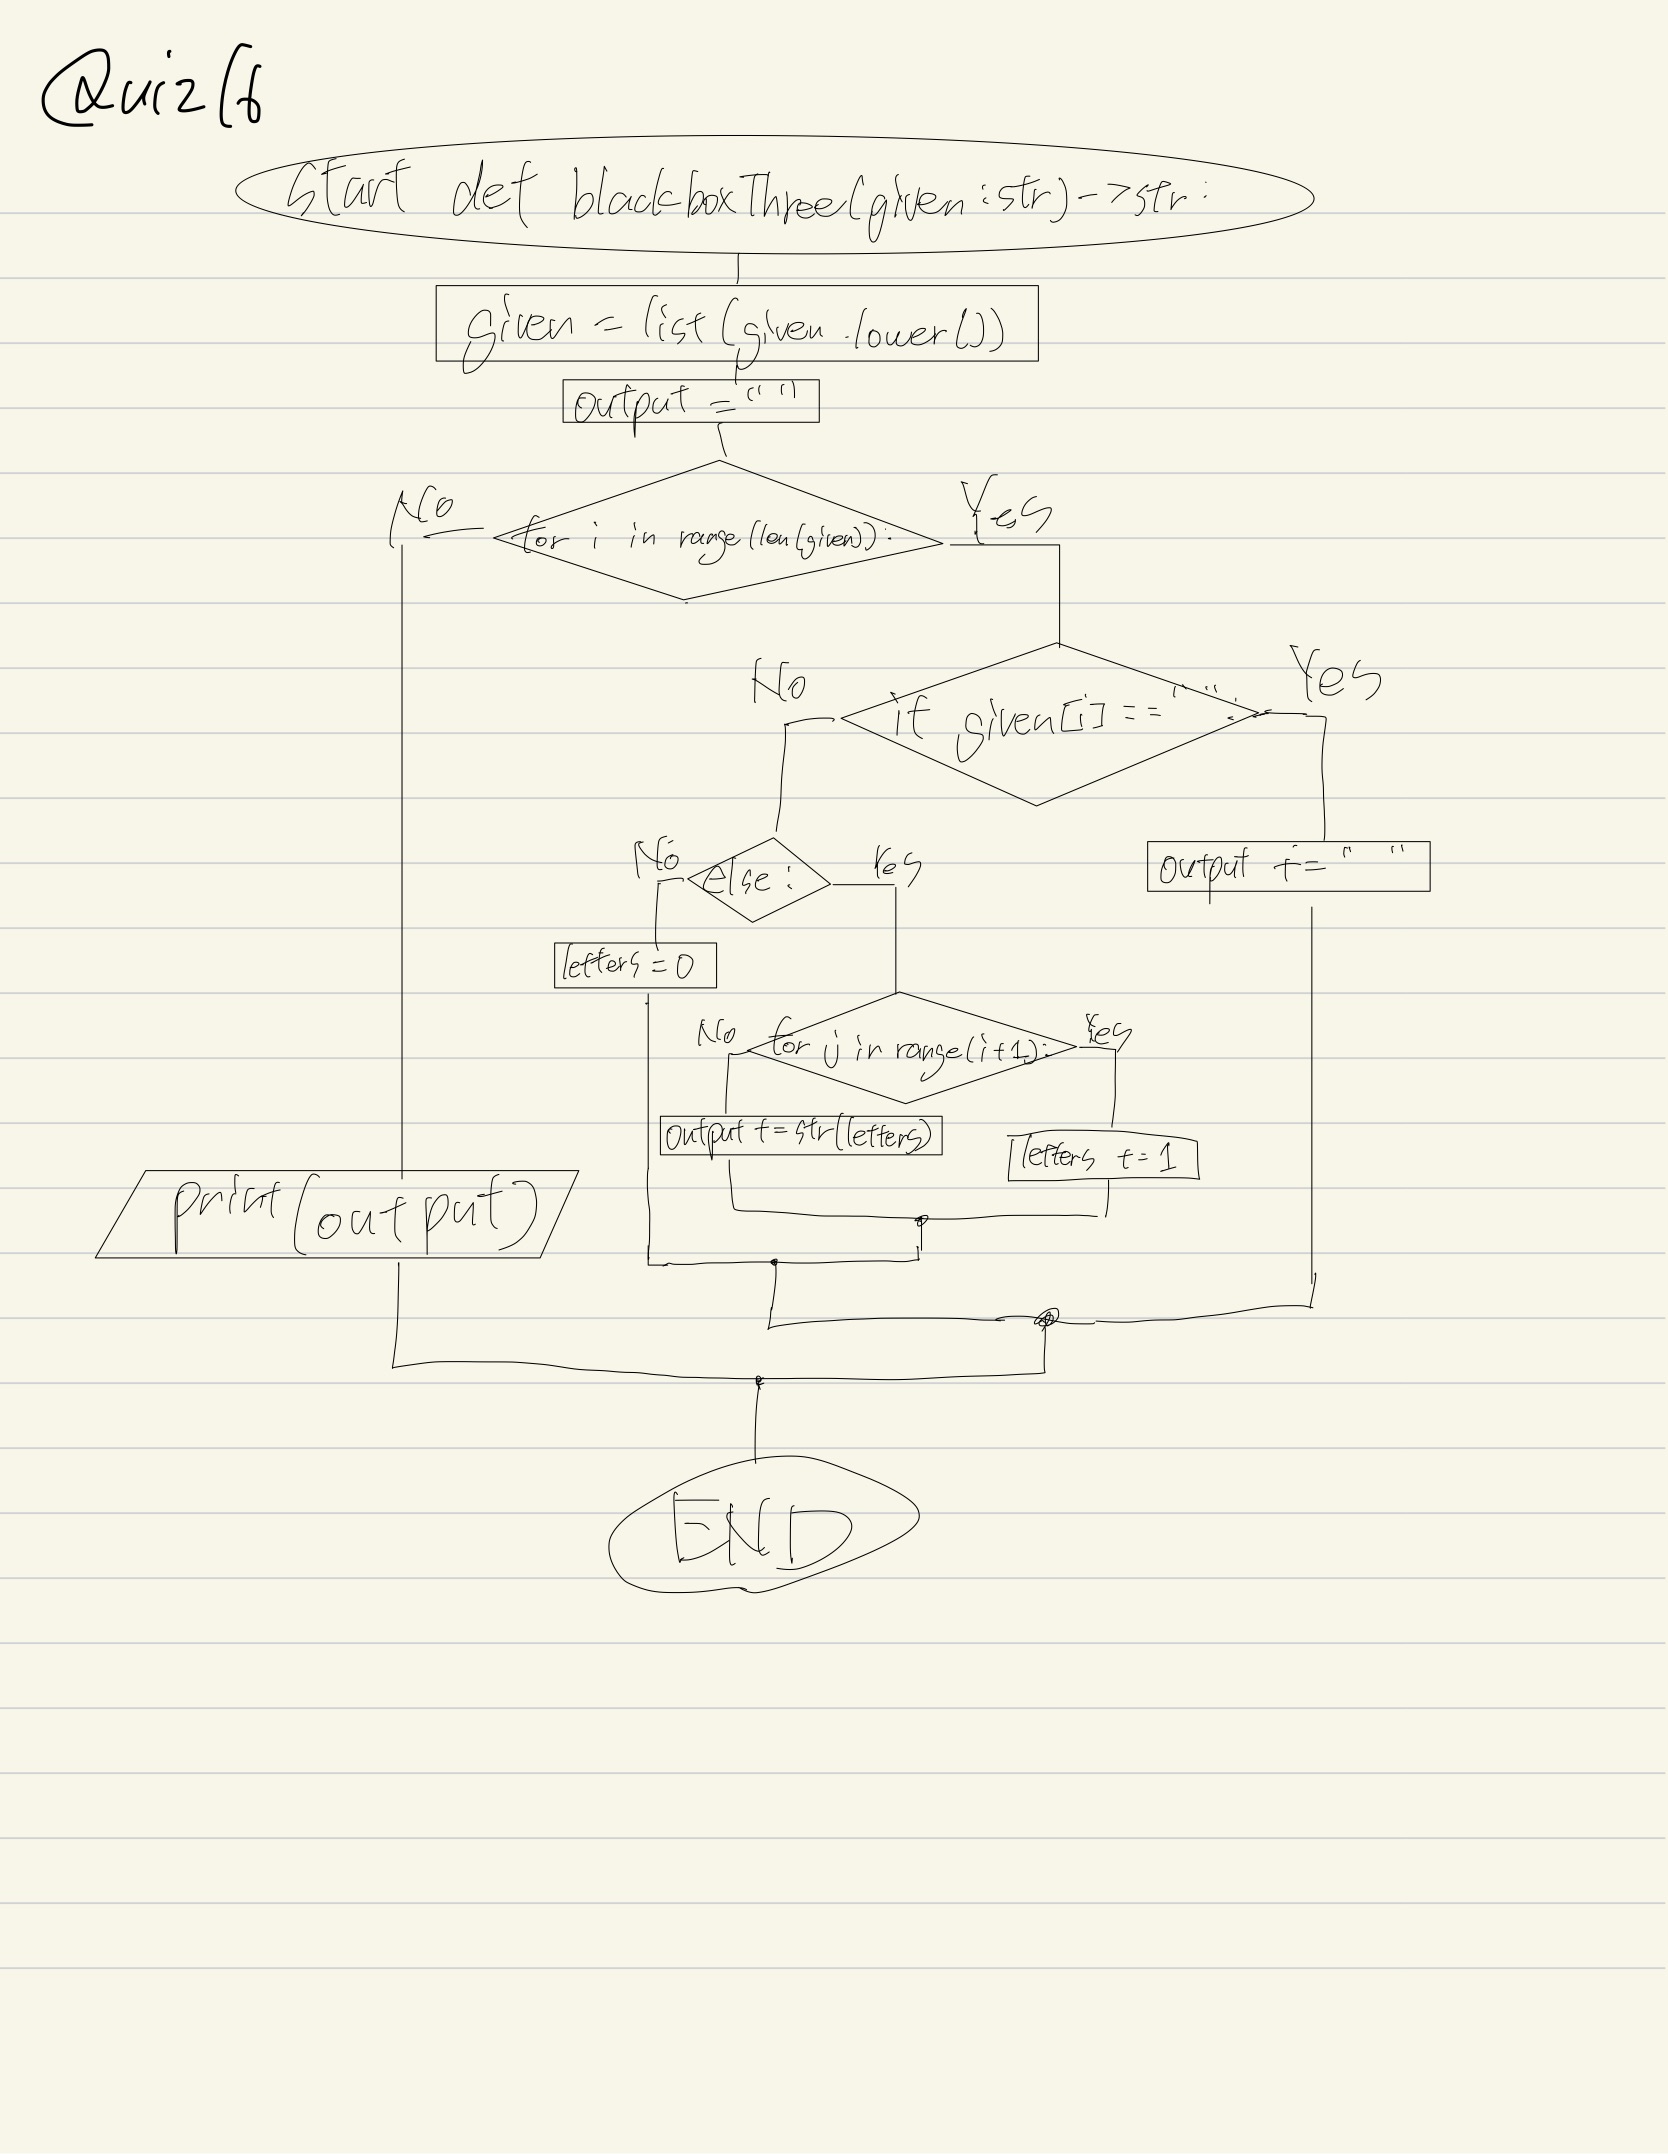 Quiz 16
Start def blackboxThree(given:str)->str:
given = list(given.lower())
output = ""
No
Yes
for i in range(len(given)):
No
Yes
if given[i] == " ":
No
Yes
else:
output += " "
letters = 0
No
Yes
for j in range(i+1):
output += str(letters)
letters += 1
print(output)
END